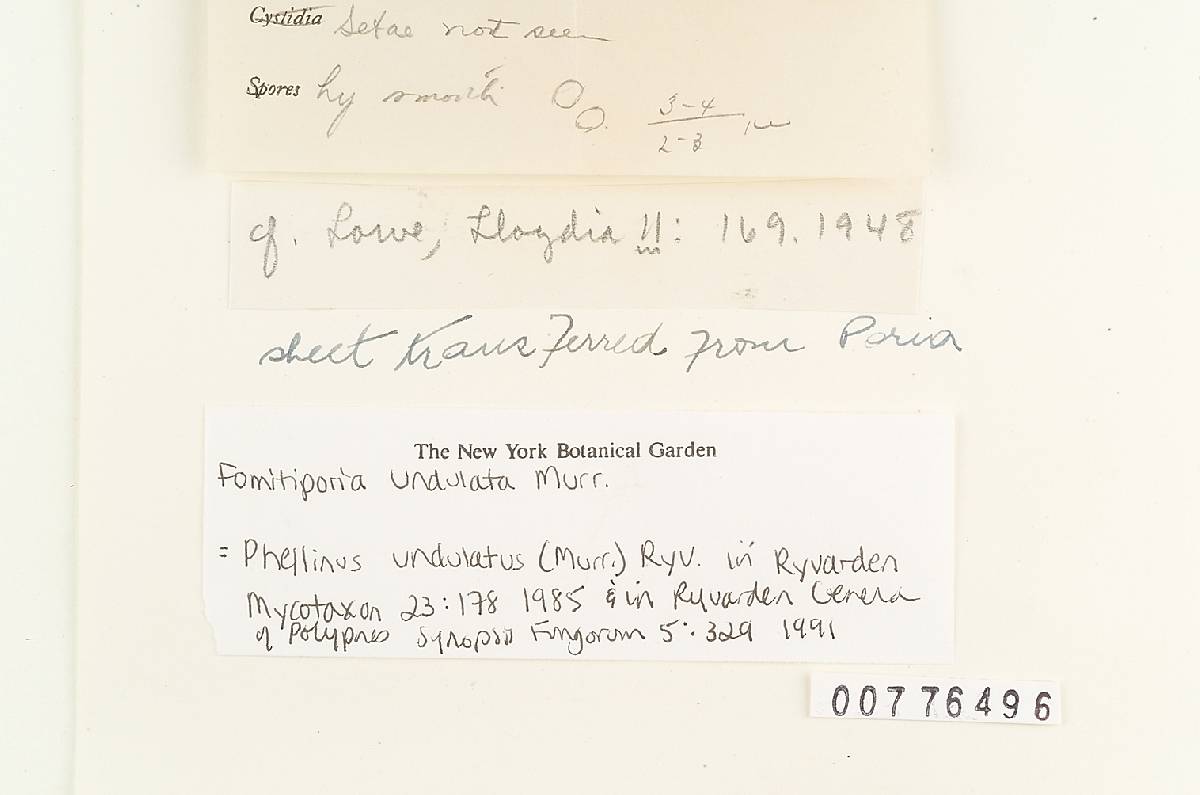 Cystidia Setae not seen
Spores hy smooth 3-4
2-3 μ
cf. Lowe, Lloydia 11: 169. 1948
sheet transferred from Poria
The New York Botanical Garden
Fomitiporia undulata Murr.
= Phellinus undulatus (Murr.) Ryv. in Ryvarden
Mycotaxon 23:178 1985 & in Ryvarden Genera
of Polypores Synopsis Fungorum 5: 329 1991
00776496